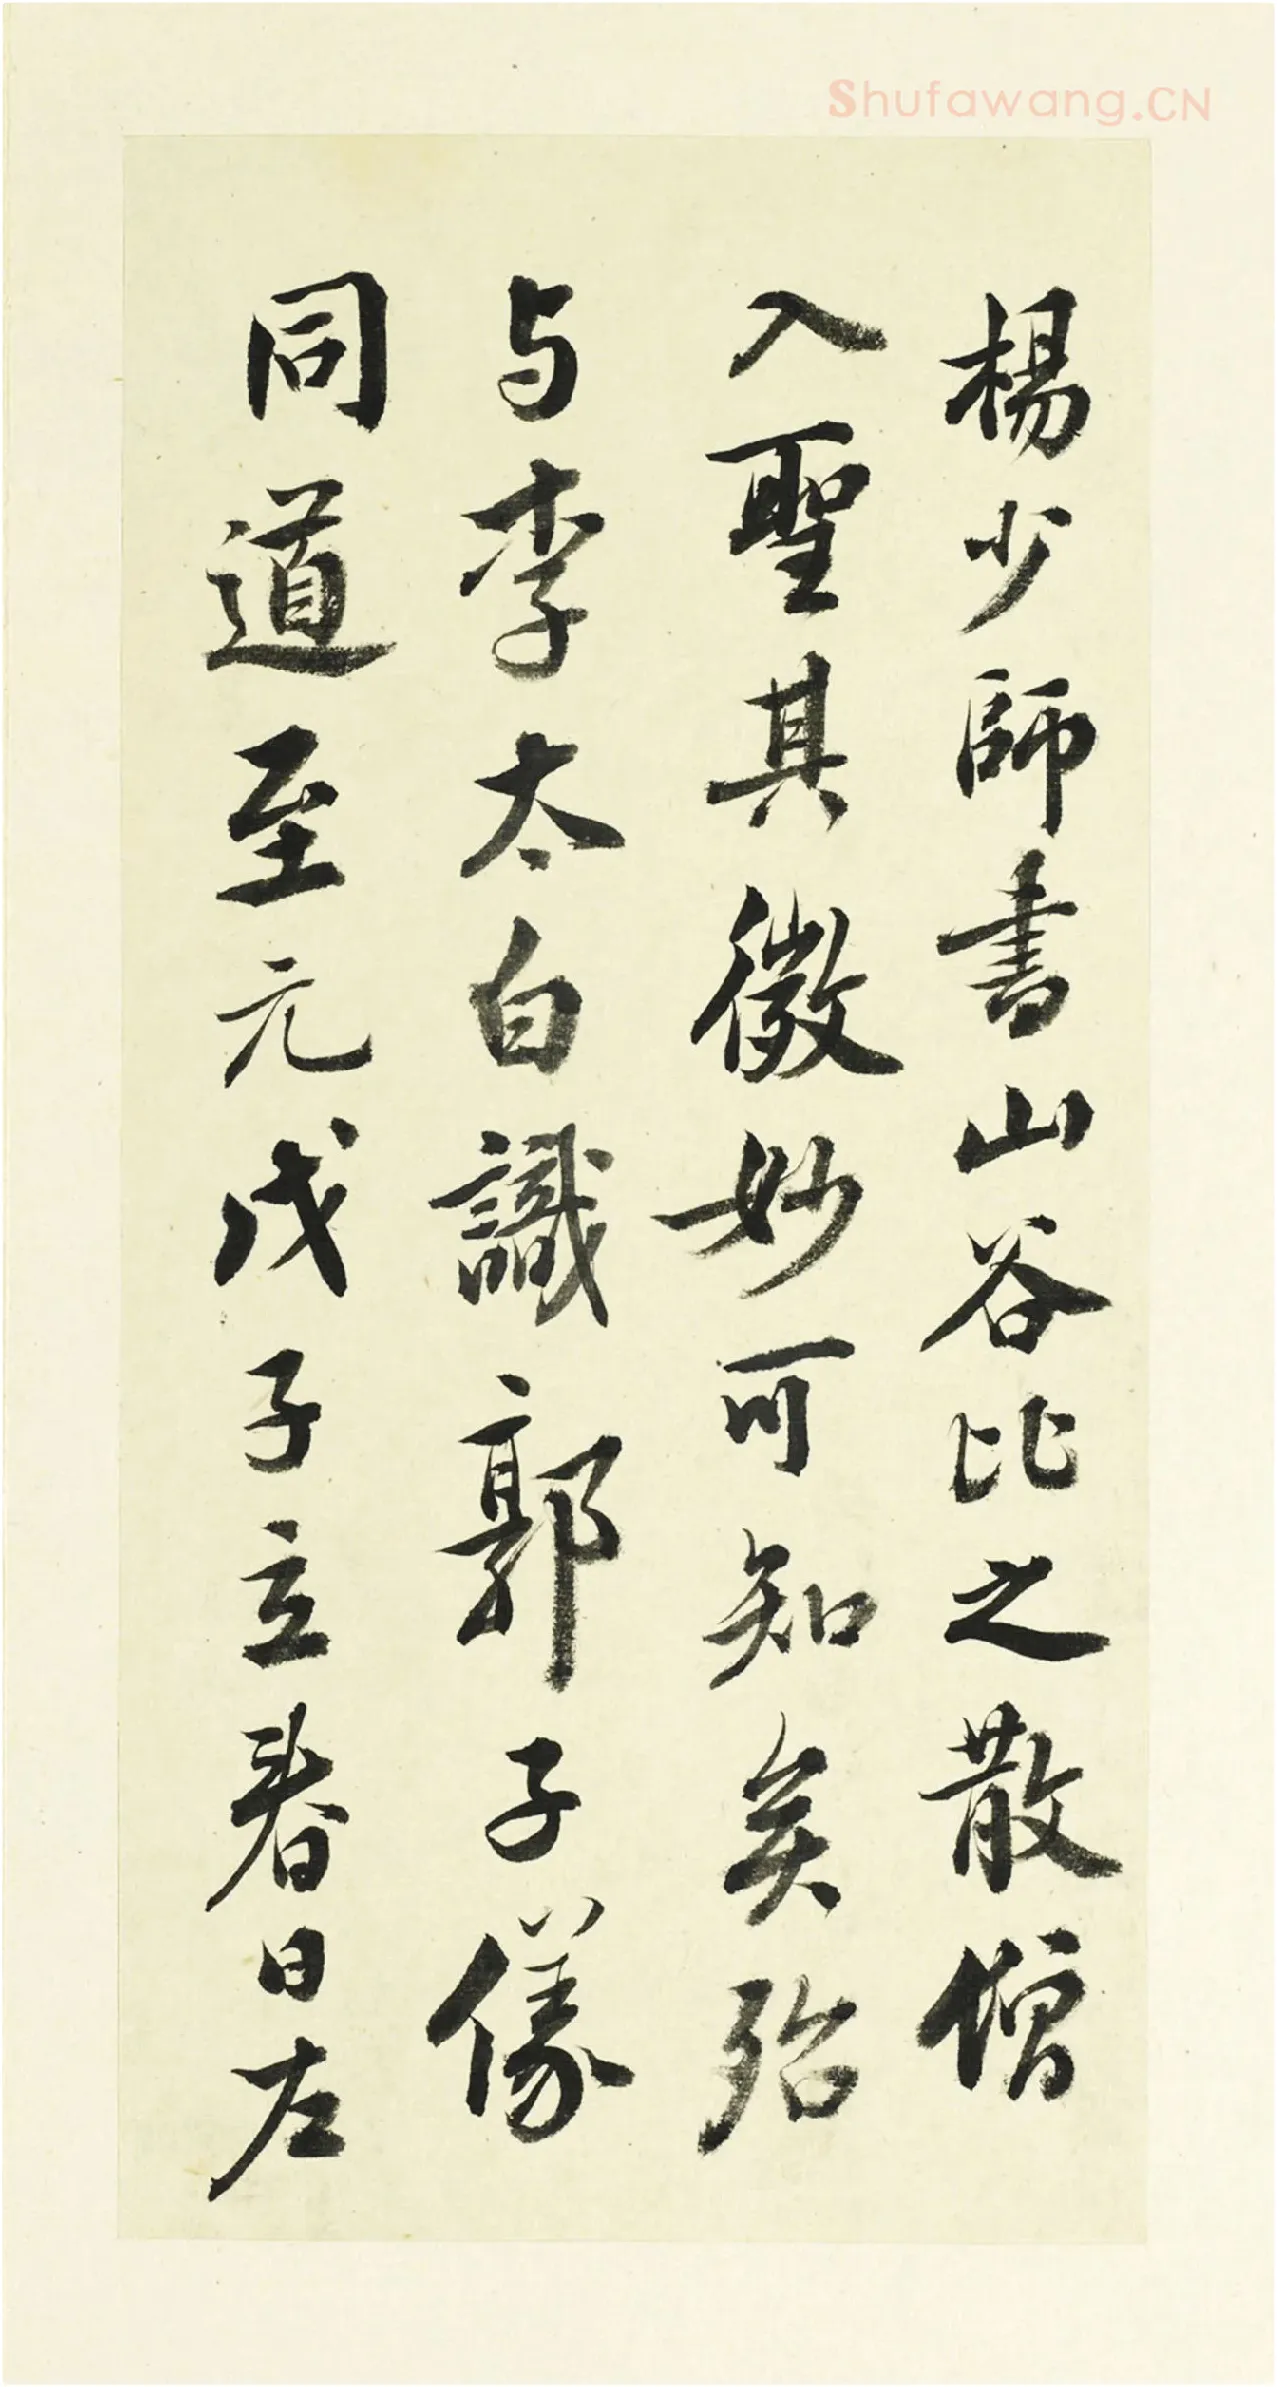 Shufawang.CN
楊少師書山谷比之散僧
入聖其微妙可知矣殆
与李太白識郭子儀
同道至元戊子立春日左